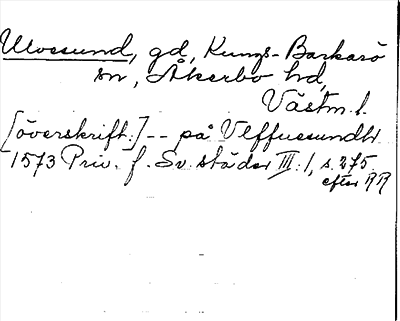 Ulvsund, gd, Kungs-Barkarö
sn, Åkerbo hd,
Västm. l.
[överskrift:] -- på Vlffuesundh
1573 Priv. f. Sv. städer III:1, s. 275
efter RR